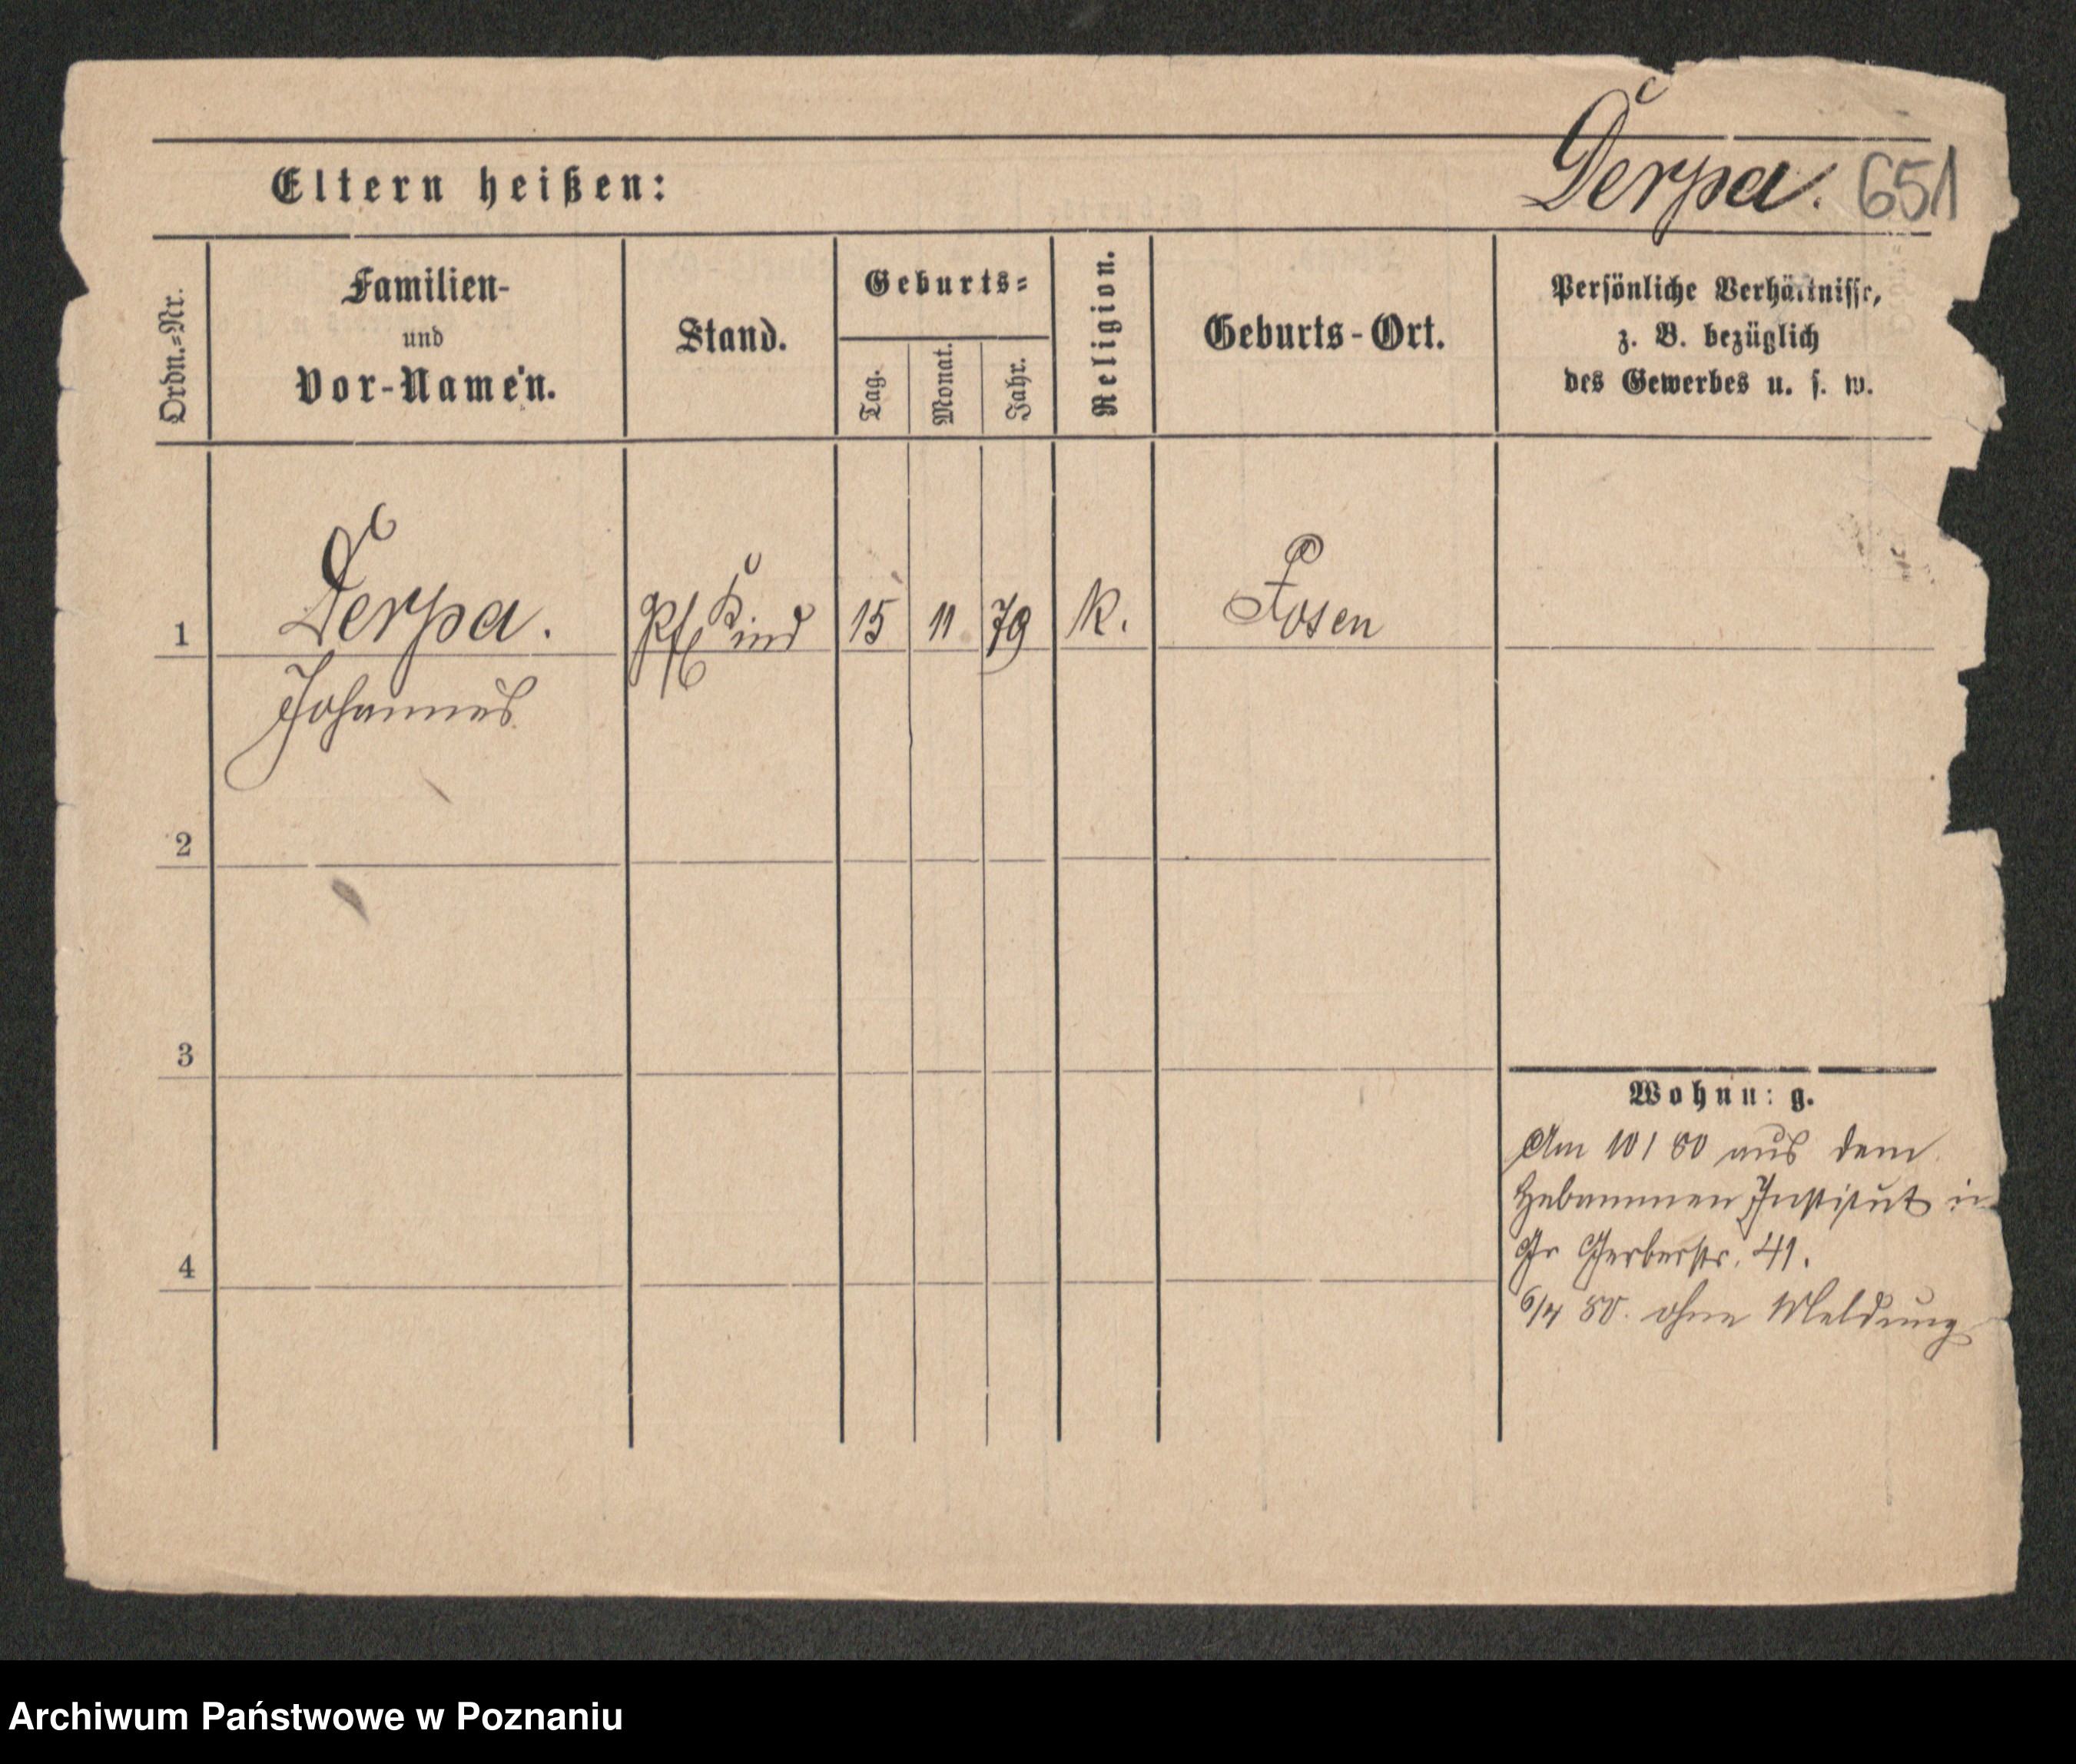 Derpa. 651
Eltern heißen:
Ordn.=Nr.
Familien-
und
Vor-Namen.
Stand.
Geburts=
Tag.
Monat.
Jahr.
Religion.
Geburts-Ort.
Persönliche Verhältnisse,
z. B. bezüglich
des Gewerbes u. s. w.
1 Derpa. Pfl Kind 15 11 79 K. Posen
Johannes
2
3
4
Wohnu: g.
Am 10 1 80 aus dem
Hebammen Institut in
Gr Gerberstr. 41.
6/4 80. ohne Meldung
Archiwum Państwowe w Poznaniu